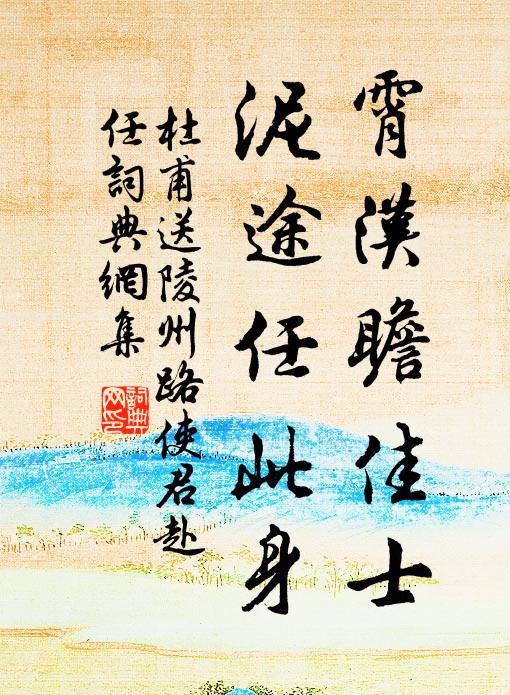 霄漢瞻佳士
泥途任此身
杜甫送陵州路使君赴
任詞典網集
詞典
网印